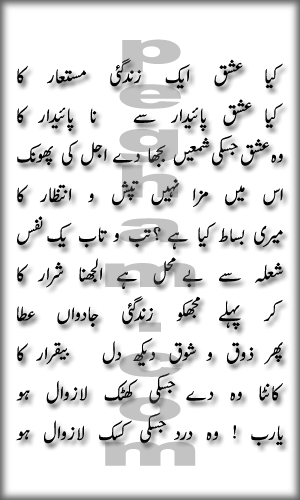 کیا عشق ایک زندگئ مستعار کا
کیا عشق پائیدار سے نا پائیدار کا
وہ عشق جسکی شمعیں بجھا دے اجل کی پھونک
اس میں مزا نہیں تپش و انتظار کا
میری بساط کیا ہے ؟ تب و تاب یک نفس
شعلہ سے بے محل ہے الجھنا شرار کا
کر پہلے مجھکو زندگئ جاوداں عطا
پھر ذوق و شوق دیکھ دل بیقرار کا
کانٹا وہ دے جسکی کھٹک لازوال ہو
یارب ! وہ درد جسکی کسک لازوال ہو
peghaam.com